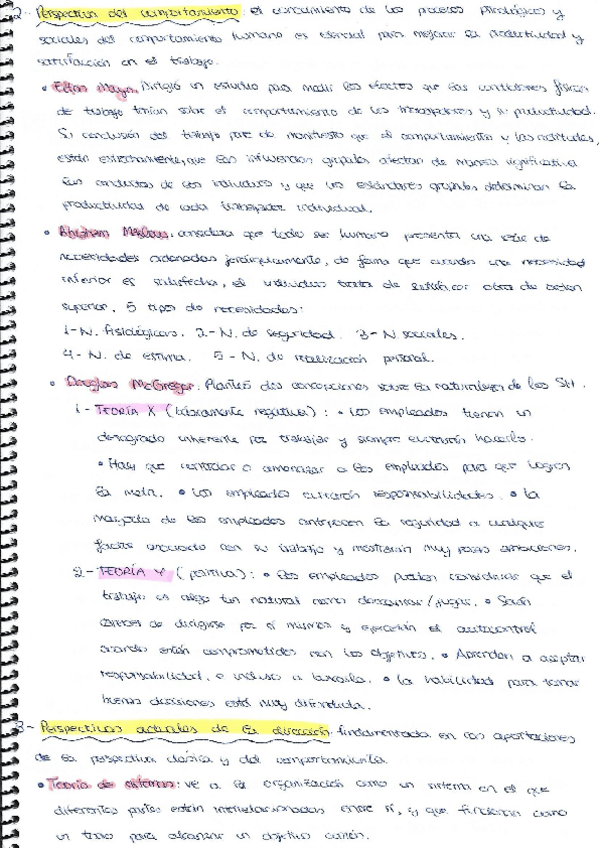 2- Perspectiva del comportamiento: el conocimiento de los procesos psicológicos y
sociales del comportamiento humano es esencial para mejorar la productividad y
satisfacción en el trabajo.
• Elton Mayo, dirigió un estudio para medir los efectos que las condiciones físicas
de trabajo tenían sobre el comportamiento de los trabajadores y su productividad.
Su conclusión del trabajo pone de manifiesto que el comportamiento y las actitudes,
están estrechamente, que las influencias grupales afectan de manera significativa
las conductas de los individuos y que los estándares grupales determinan la
productividad de cada trabajador individual.
• Abraham Maslow, considera que todo ser humano presenta una serie de
necesidades ordenadas jerárquicamente, de forma que cuando una necesidad
inferior es satisfecha, el individuo trata de satisfacer otra de orden
superior. 5 tipos de necesidades:
1- N. fisiológicas. 2- N. de seguridad. 3- N. sociales.
4- N. de estima. 5- N. de realización personal.
• Douglas McGregor: Planteó dos concepciones sobre la naturaleza de los SH.
1- TEORÍA X (básicamente negativa): • Los empleados tienen un
desagrado inherente por trabajar y siempre evitarán hacerlo.
• Hay que controlar o amenazar a los empleados para que logren
la meta. • Los empleados evitarán responsabilidades. • La
mayoría de los empleados anteponen la seguridad a cualquier
factor asociado con su trabajo y mostrarán muy pocas ambiciones.
2- TEORÍA Y (positiva): • Los empleados pueden considerar que el
trabajo es algo tan natural como descansar/jugar. • Serán
capaces de dirigirse por sí mismos y ejercerán el autocontrol
cuando están comprometidos con los objetivos. • Aprenden a aceptar
responsabilidad, e incluso a buscarla. • La habilidad para tomar
buenas decisiones está muy difundida.
3- Perspectivas actuales de la dirección: fundamentada en las aportaciones
de la perspectiva clásica y del comportamiento.
• Teoría de sistemas: ve a la organización como un sistema en el que
diferentes partes están interrelacionadas entre sí, y que funcionan como
un todo para alcanzar un objetivo común.